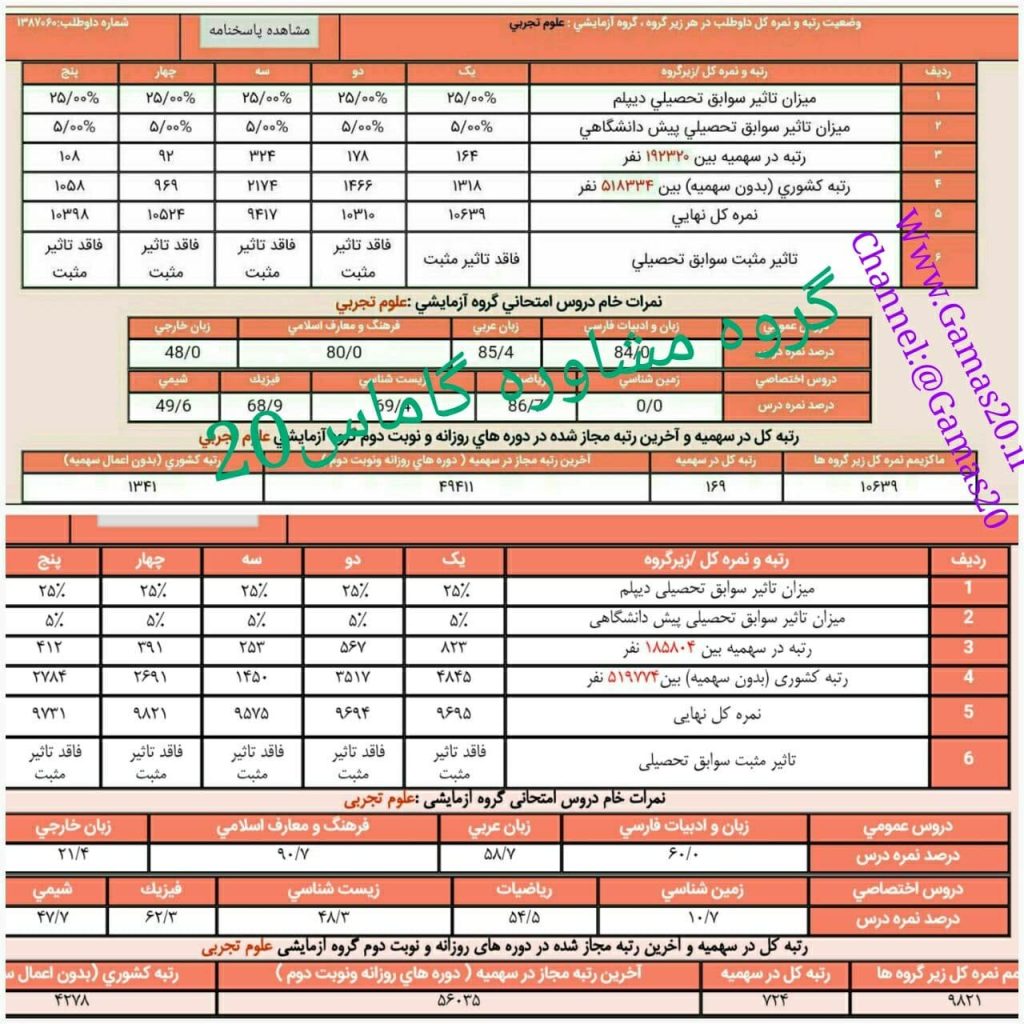 وضعیت رتبه و نمره کل داوطلب در هر زیر گروه ، گروه آزمایشي : علوم تجربي
مشاهده پاسخنامه
شماره داوطلب:۱۳۸۷۰۶۰
ردیف رتبه و نمره کل /زیرگروه یک دو سه چهار پنج
۱ میزان تاثیر سوابق تحصیلي دیپلم ۲۵/۰۰% ۲۵/۰۰% ۲۵/۰۰% ۲۵/۰۰% ۲۵/۰۰%
۲ میزان تاثیر سوابق تحصیلي پیش دانشگاهي ۵/۰۰% ۵/۰۰% ۵/۰۰% ۵/۰۰% ۵/۰۰%
۳ رتبه در سهمیه بین ۱۹۲۳۲۰ نفر ۱۶۴ ۱۷۸ ۳۲۴ ۹۲ ۱۰۸
۴ رتبه کشوري (بدون سهمیه) بین ۵۱۸۳۳۴ نفر ۱۳۱۸ ۱۴۶۶ ۲۱۷۴ ۹۶۹ ۱۰۵۸
۵ نمره کل نهایي ۱۰۶۳۹ ۱۰۳۱۰ ۹۴۱۷ ۱۰۵۲۴ ۱۰۳۹۸
۶ تاثیر مثبت سوابق تحصیلي فاقد تاثیر مثبت فاقد تاثیر مثبت فاقد تاثیر مثبت فاقد تاثیر مثبت فاقد تاثیر مثبت
نمرات خام دروس امتحاني گروه آزمایشي :علوم تجربي
عمومي زبان و ادبیات فارسي زبان عربي فرهنگ و معارف اسلامي زبان خارجي
درصد نمره درس 84/0 85/4 80/0 48/0
دروس اختصاصي زمین شناسي ریاضیات زیست شناسي فیزیك شیمي
درصد نمره درس 0/0 86/7 69/4 68/9 49/6
رتبه کل در سهمیه و آخرین رتبه مجاز شده در دوره هاي روزانه و نوبت دوم گروه آزمایشي علوم تجربي
ماکزیمم نمره کل زیر گروه ها رتبه کل در سهمیه آخرین رتبه مجاز در سهمیه ( دوره هاي روزانه ونوبت دوم رتبه کشوري (بدون اعمال سهمیه)
۱۰۶۳۹ ۱۶۹ ۴۹۴۱۱ ۱۳۴۱
گروه مشاوره گاماس20
Www.Gamas20.ir
Channel:@Gamas20
ردیف رتبه و نمره کل /زیرگروه یک دو سه چهار پنج
1 میزان تاثیر سوابق تحصیلی دیپلم ۲۵٪ ۲۵٪ ۲۵٪ ۲۵٪ ۲۵٪
2 میزان تاثیر سوابق تحصیلی پیش دانشگاهی ۵٪ ۵٪ ۵٪ ۵٪ ۵٪
3 رتبه در سهمیه بین ۱۸۵۸۰۴ نفر ۸۲۳ ۵۶۷ ۲۵۳ ۳۹۱ ۴۱۲
4 رتبه کشوری (بدون سهمیه) بین ۵۱۹۷۷۴ نفر ۴۸۴۵ ۳۵۱۷ ۱۴۵۰ ۲۶۹۱ ۲۷۸۴
5 نمره کل نهایی ۹۶۹۵ ۹۶۹۴ ۹۵۷۵ ۹۸۲۱ ۹۷۳۱
6 تاثیر مثبت سوابق تحصیلی فاقد تاثیر مثبت فاقد تاثیر مثبت فاقد تاثیر مثبت فاقد تاثیر مثبت فاقد تاثیر مثبت
نمرات خام دروس امتحانی گروه ازمایشی :علوم تجربی
دروس عمومي زبان و ادبیات فارسي زبان عربي فرهنگ و معارف اسلامي زبان خارجي
درصد نمره درس ۶۰/۰ ۵۸/۷ ۹۰/۷ ۲۱/۴
دروس اختصاصي زمین شناسي ریاضیات زیست شناسي فیزیك شیمي
درصد نمره درس ۱۰/۷ ۵۴/۵ ۴۸/۳ ۶۲/۳ ۴۷/۷
رتبه کل در سهمیه و آخرین رتبه مجاز شده در دوره های روزانه و نوبت دوم گروه ازمایشی علوم تجربی
نمره کل زیر گروه ها رتبه کل در سهمیه آخرین رتبه مجاز در سهمیه ( دوره هاي روزانه ونوبت دوم ) رتبه کشوري (بدون اعمال
۹۸۲۱ ۷۲۴ ۵۶۰۳۵ ۴۲۷۸